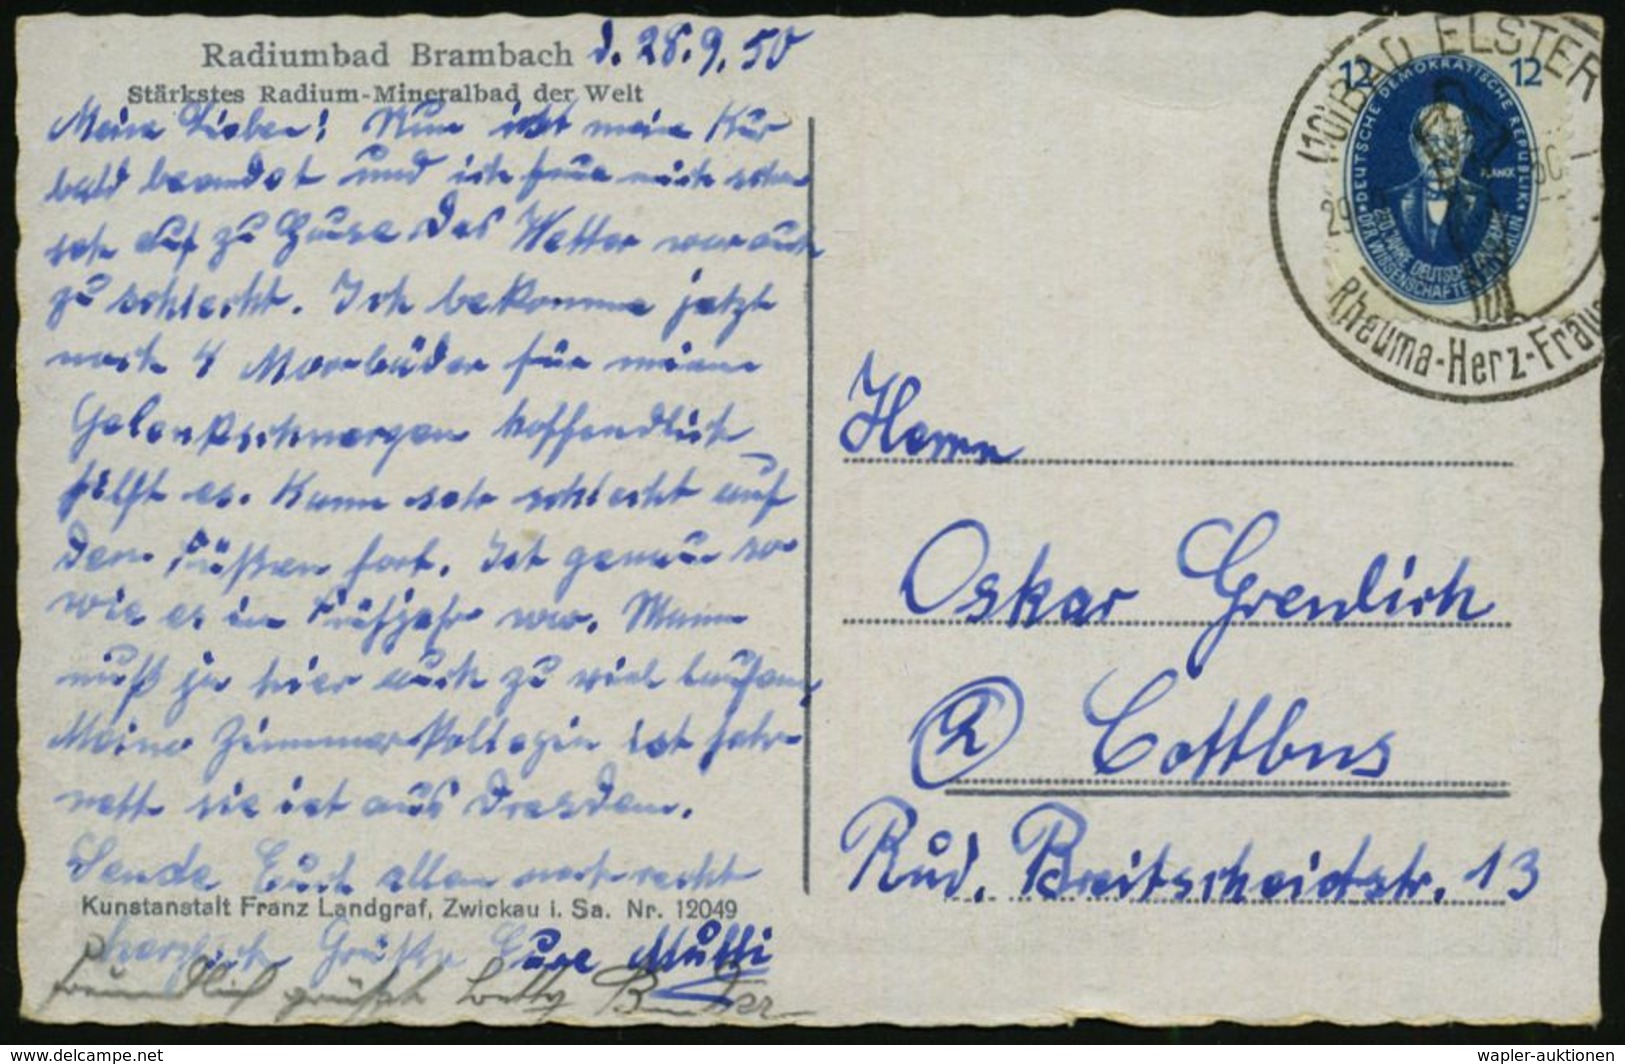 Radiumbad Brambach d. 28.9.50
Stärkstes Radium-Mineralbad der Welt
Meine Lieben! Nun ist meine Kur
bald beendet und ich freue mich schon
sehr auf zu Hause. Das Wetter war auch
zu schlecht. Ich bekomme jetzt
noch 4 Moorbäder für meine
Gelenkschmerzen hoffendlich
hilft es. Kann sehr schlecht auf
den Füßen fort. Ist genau so
wie es im Frühjahr war. Mann
muß ja hier auch zu viel laufen,
Meine Zimmerkollegin ist sehr
nett sie ist aus Dresden.
Sende Euch allen noch recht
Kunstanstalt Franz Landgraf, Zwickau i. Sa. Nr. 12049
herzlich Grüße Eure Mutti
Freundlich grüßt
(10) BAD ELSTER
12 12
DEUTSCHE DEMOKRATISCHE REPUBLIK
PLANCK
29 50
DER WISSENSCHAFTEN
Rheuma-Herz-Frau
Herrn
Oskar Grenlich
2 Cottbus
Rud. Breitscheidstr. 13
© www.delcampe.net
wapler-auktionen